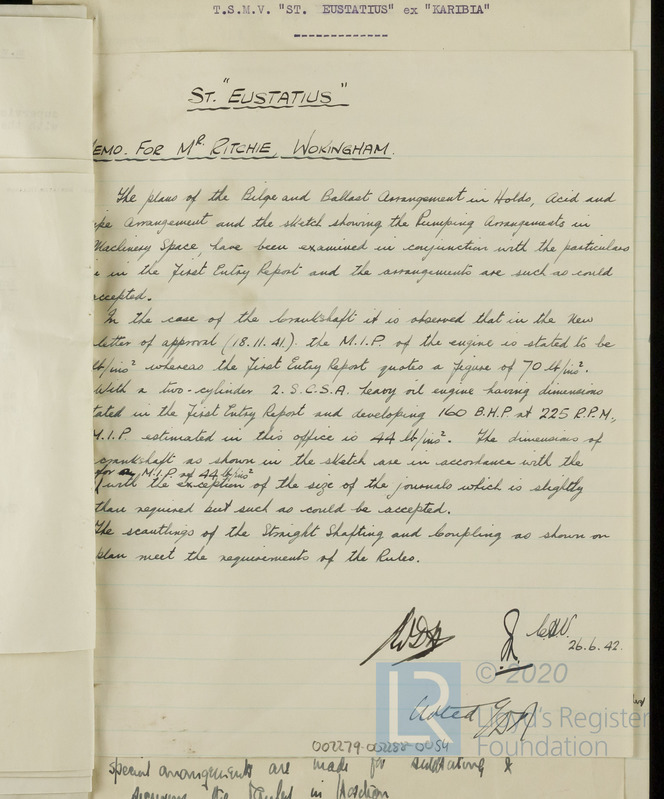 T.S.M.V. "ST. EUSTATIUS" ex "KARIBIA"
ST. "EUSTATIUS"
EMO. FOR MR. RITCHIE, WOKINGHAM.
The plans of the Bilge and Ballast Arrangement in Holds, Acid and
ipe Arrangement and the sketch showing the Pumping Arrangements in
Machinery Space, have been examined in conjunction with the particulars
in the First Entry Report and the arrangements are such as could
accepted.
In the case of the Crankshaft it is observed that in the New
letter of approval (18.11.41.) the M.I.P. of the engine is stated to be
lb/ins² whereas the First Entry Report quotes a figure of 70 lb/ins².
With a two-cylinder 2.S.C.S.A. heavy oil engine having dimensions
tated in the First Entry Report and developing 160 B.H.P. at 225 R.P.M.,
M.I.P. estimated in this office is 44 lb/ins². The dimensions of
crankshaft as shown in the sketch are in accordance with the
for M.I.P. of 44 lb/ins²
with the exception of the size of the journals which is slightly
than required but such as could be accepted.
The scantlings of the Straight Shafting and Coupling as shown on
plan meet the requirements of the Rules.
26.6.42.
LR
© 2020
Lloyd's Register
Foundation
Noted
002279-002288-0054
special arrangements are made for &
in position